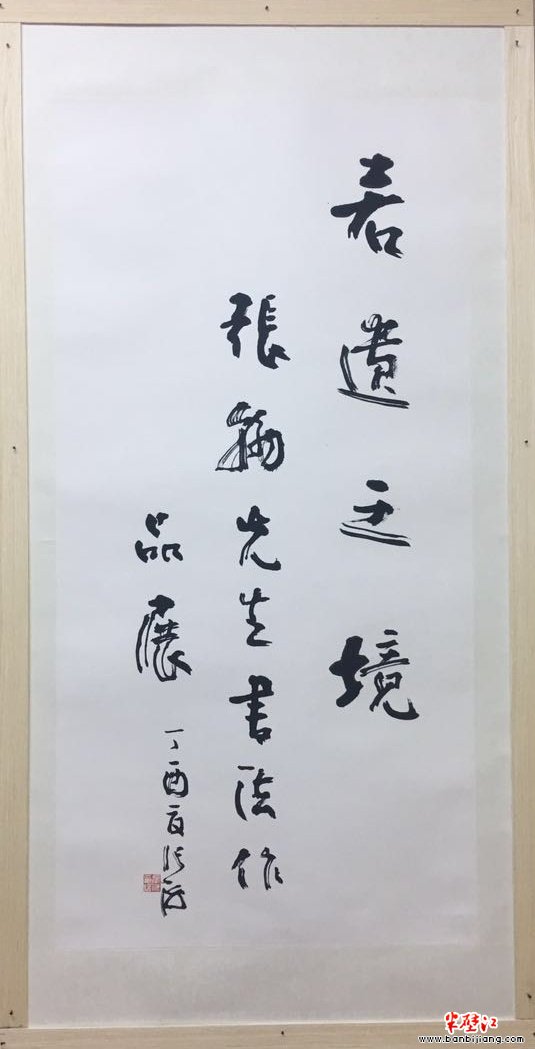 若遗之境
張翰先生書法作
品展
丁酉夏
半壁江
www.banbijiang.com